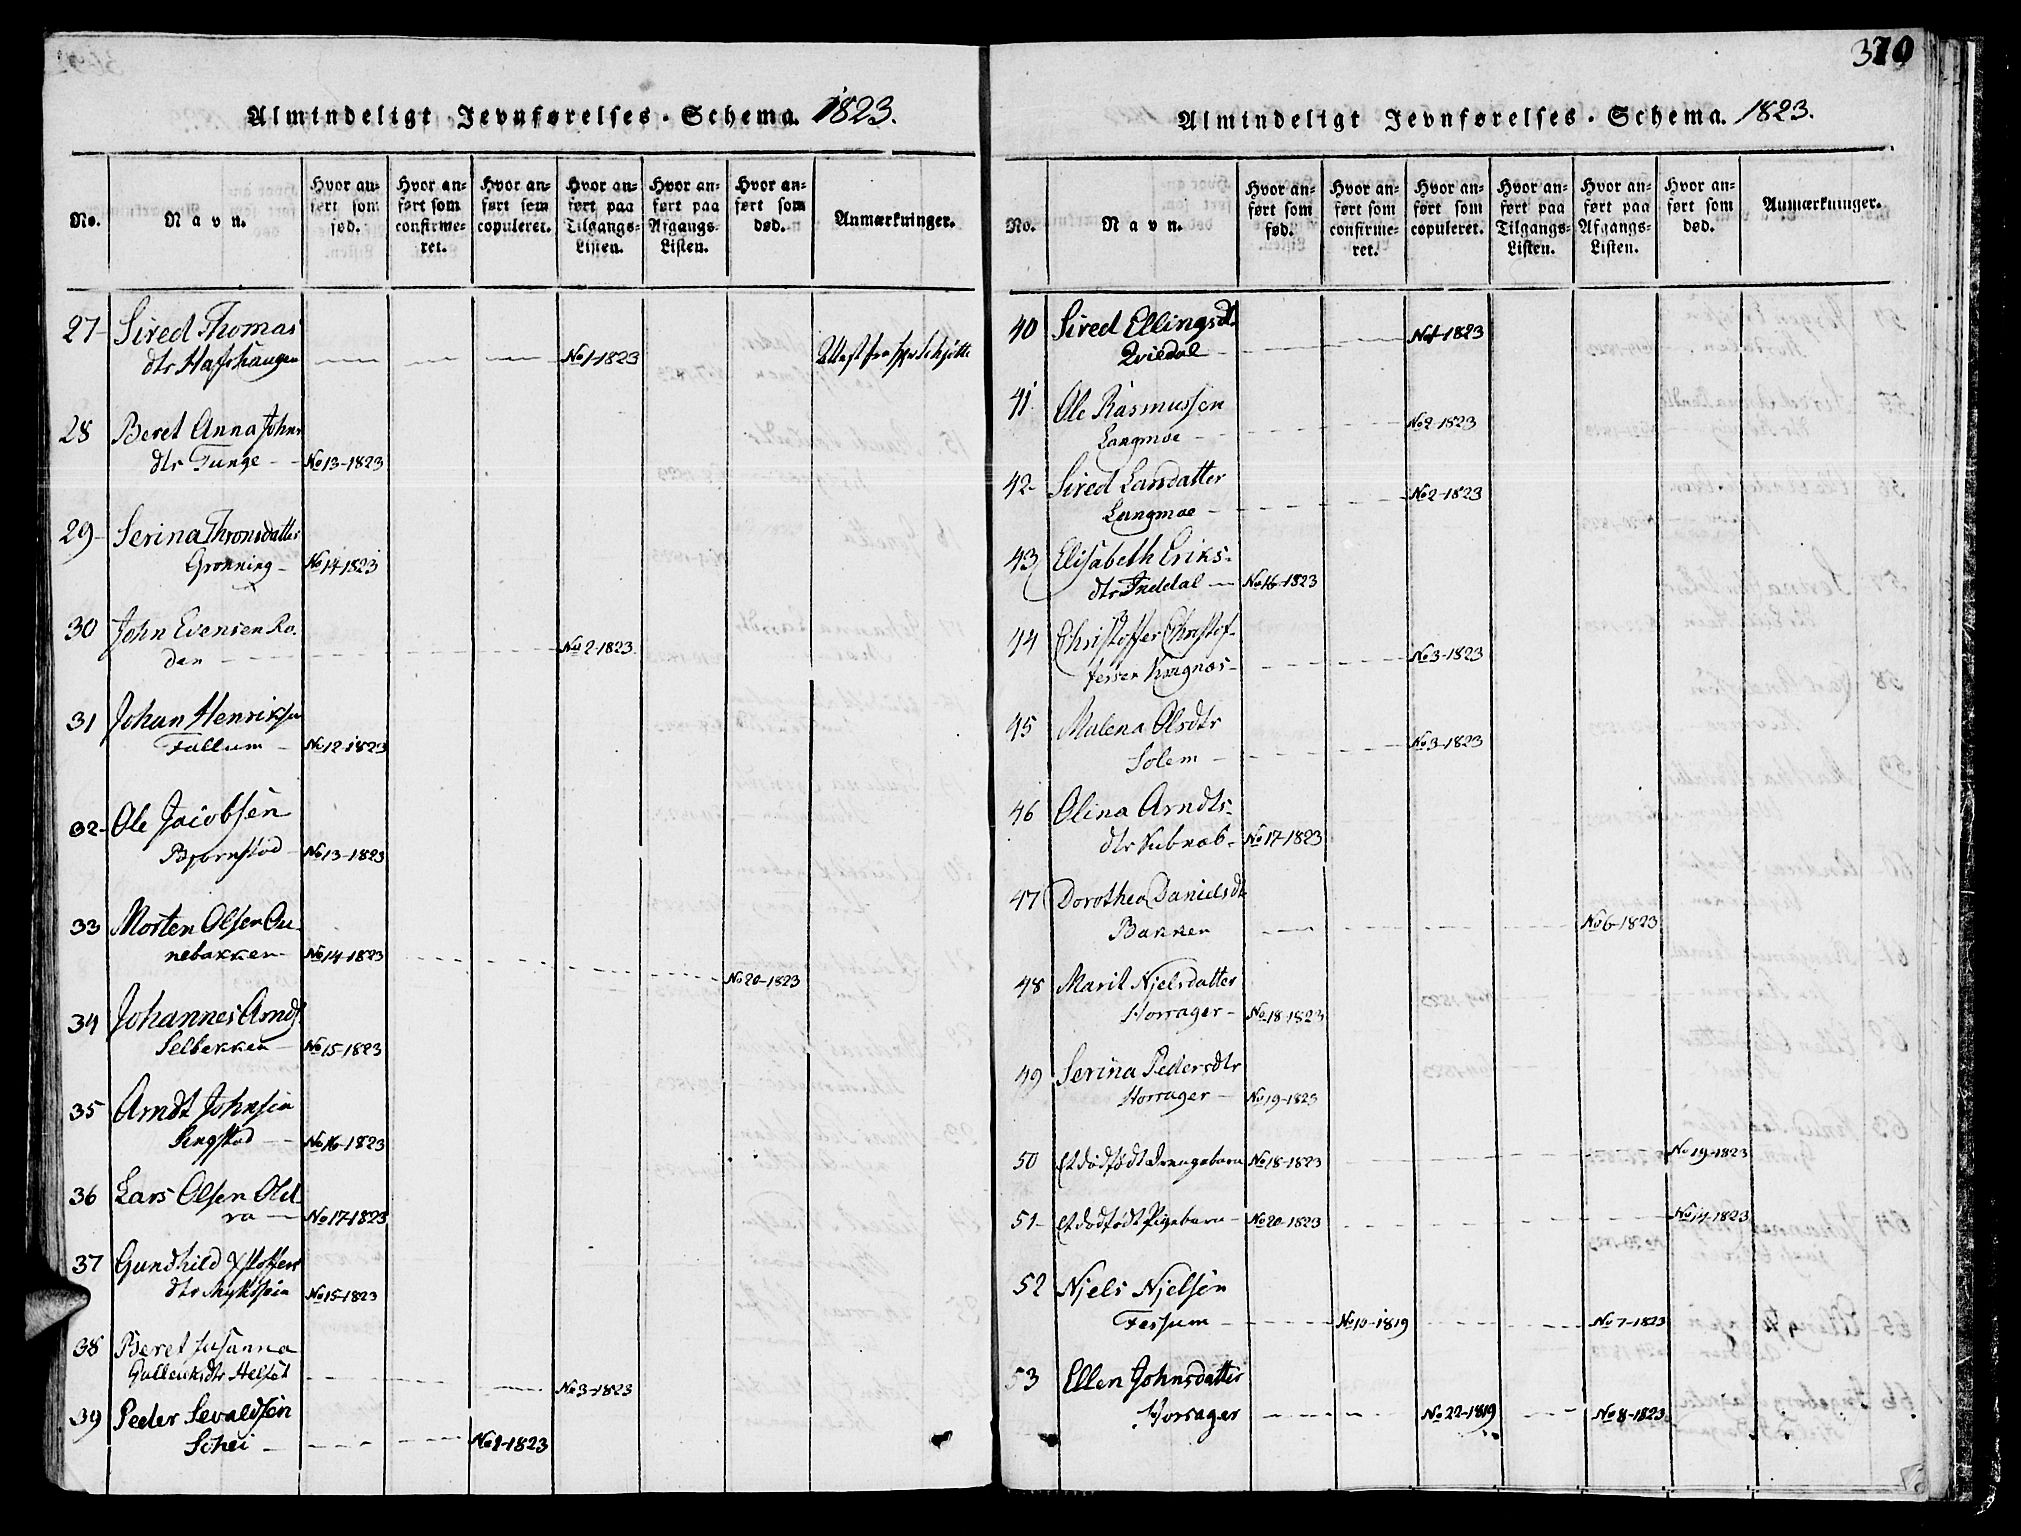 370
Almindeligt Jevnførelses-Schema. 1823.
No. Navn. Hvor anført som fød. Hvor anført som confirmeret. Hvor anført som copuleret. Hvor anført paa Tilgangs-Listen. Hvor anført paa Afgangs-Listen. Hvor anført som død. Anmærkninger.
27 Sired Thomas
dtr Hafshaugen No 1-1823
28 Beret Anna Johns
dtr Tunge No 13-1823
29 Serina Thronsdatter
Grønning No 14-1823
30 John Evensen Ro-
den No 2-1823
31 Johan Henriksen
Fallum No 12-1823
32 Ole Jacobsen
Bjørnstad No 13-1823
33 Morten Olsen
nebakken No 14-1823 No 20-1823
34 Johannes Arndts
Selbekken No 15-1823
35 Arndt Johnsen
Ringstad No 16-1823
36 Lars Olsen Old
ra No 17-1823
37 Gundhild Xstoffers
dtr No 15-1823
38 Beret Susanna
Gulleiksdtr Helset No 3-1823
39 Peder Sevaldsen
Schei No 1-1823
Almindeligt Jevnførelses-Schema. 1823.
No. Navn. Hvor anført som fød. Hvor anført som confirmeret. Hvor anført som copuleret. Hvor anført paa Tilgangs-Listen. Hvor anført paa Afgangs-Listen. Hvor anført som død. Anmærkninger.
40 Sired Ellingsdt.
Qviedal No 1-1823
41 Ole Rasmussen
Langmoe No 2-1823
42 Sired Larsdatter
Langmoe No 2-1823
43 Elisabeth Eriks-
dtr Inddal No 16-1823
44 Christoffer Christof-
fersen Kragnæs No 3-1823
45 Malena Olsdtr
Solem No 3-1823
46 Olina Arndts-
dtr Kubnæb No 17-1823
47 Dorothea Danielsdt
Bakken No 6-1823
48 Marit Njelsdatter
Horrager No 18-1823
49 Serina Pedersdtr
Horrager No 19-1823
50 et dødfødt Drengebarn No 18-1823 No 19-1823
51 et dødfødt Pigebarn No 20-1823 No 14-1823
52 Njels Njelsen
Fessum No 10-1819 No 7-1823
53 Ellen Johnsdatter
Horsager No 22-1819 No 8-1823